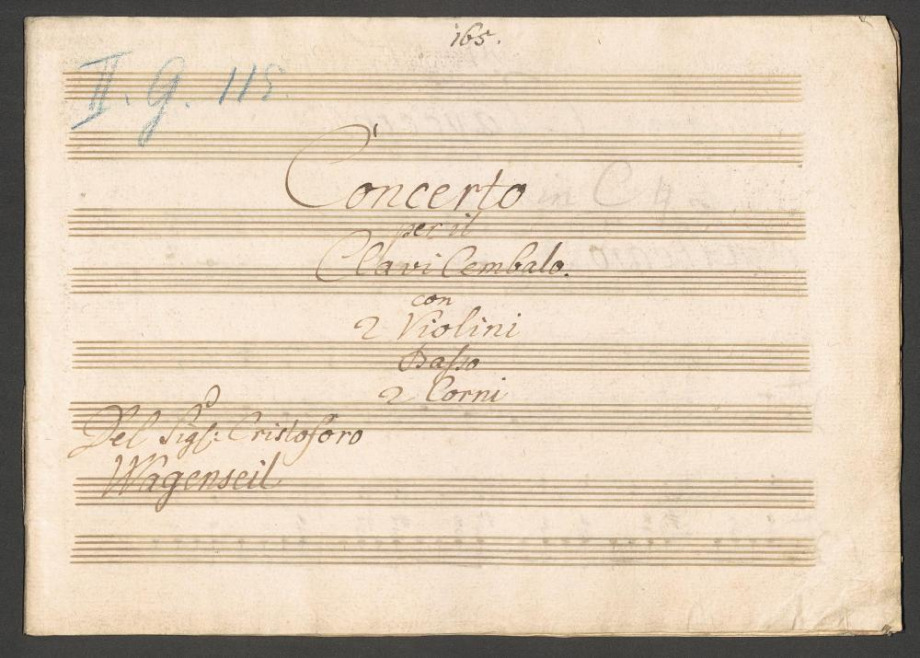 165.
II. G. 115.
Concerto
per il
Clavi Cembalo.
con
2 Violini
Basso
2 Corni
Del Sigr: Cristoforo
Wagenseil